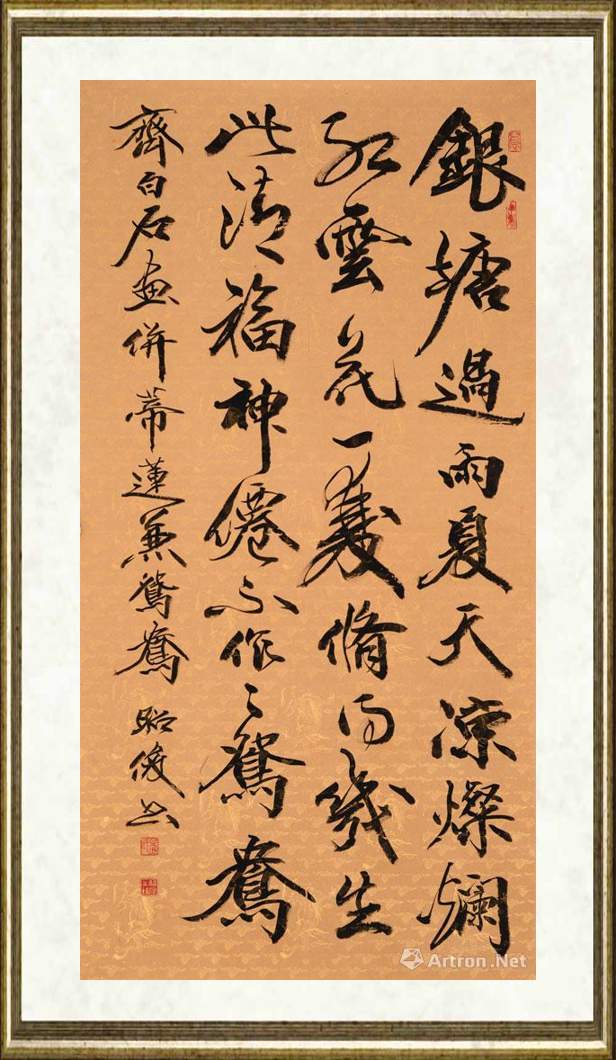 銀塘過雨夏天凉燦爛
紅雲花一雙脩得幾生
此清福神僊不作〻鴛鴦
齊白石畫併蒂蓮兼鴛鴦 昭俊书
Artron.Net